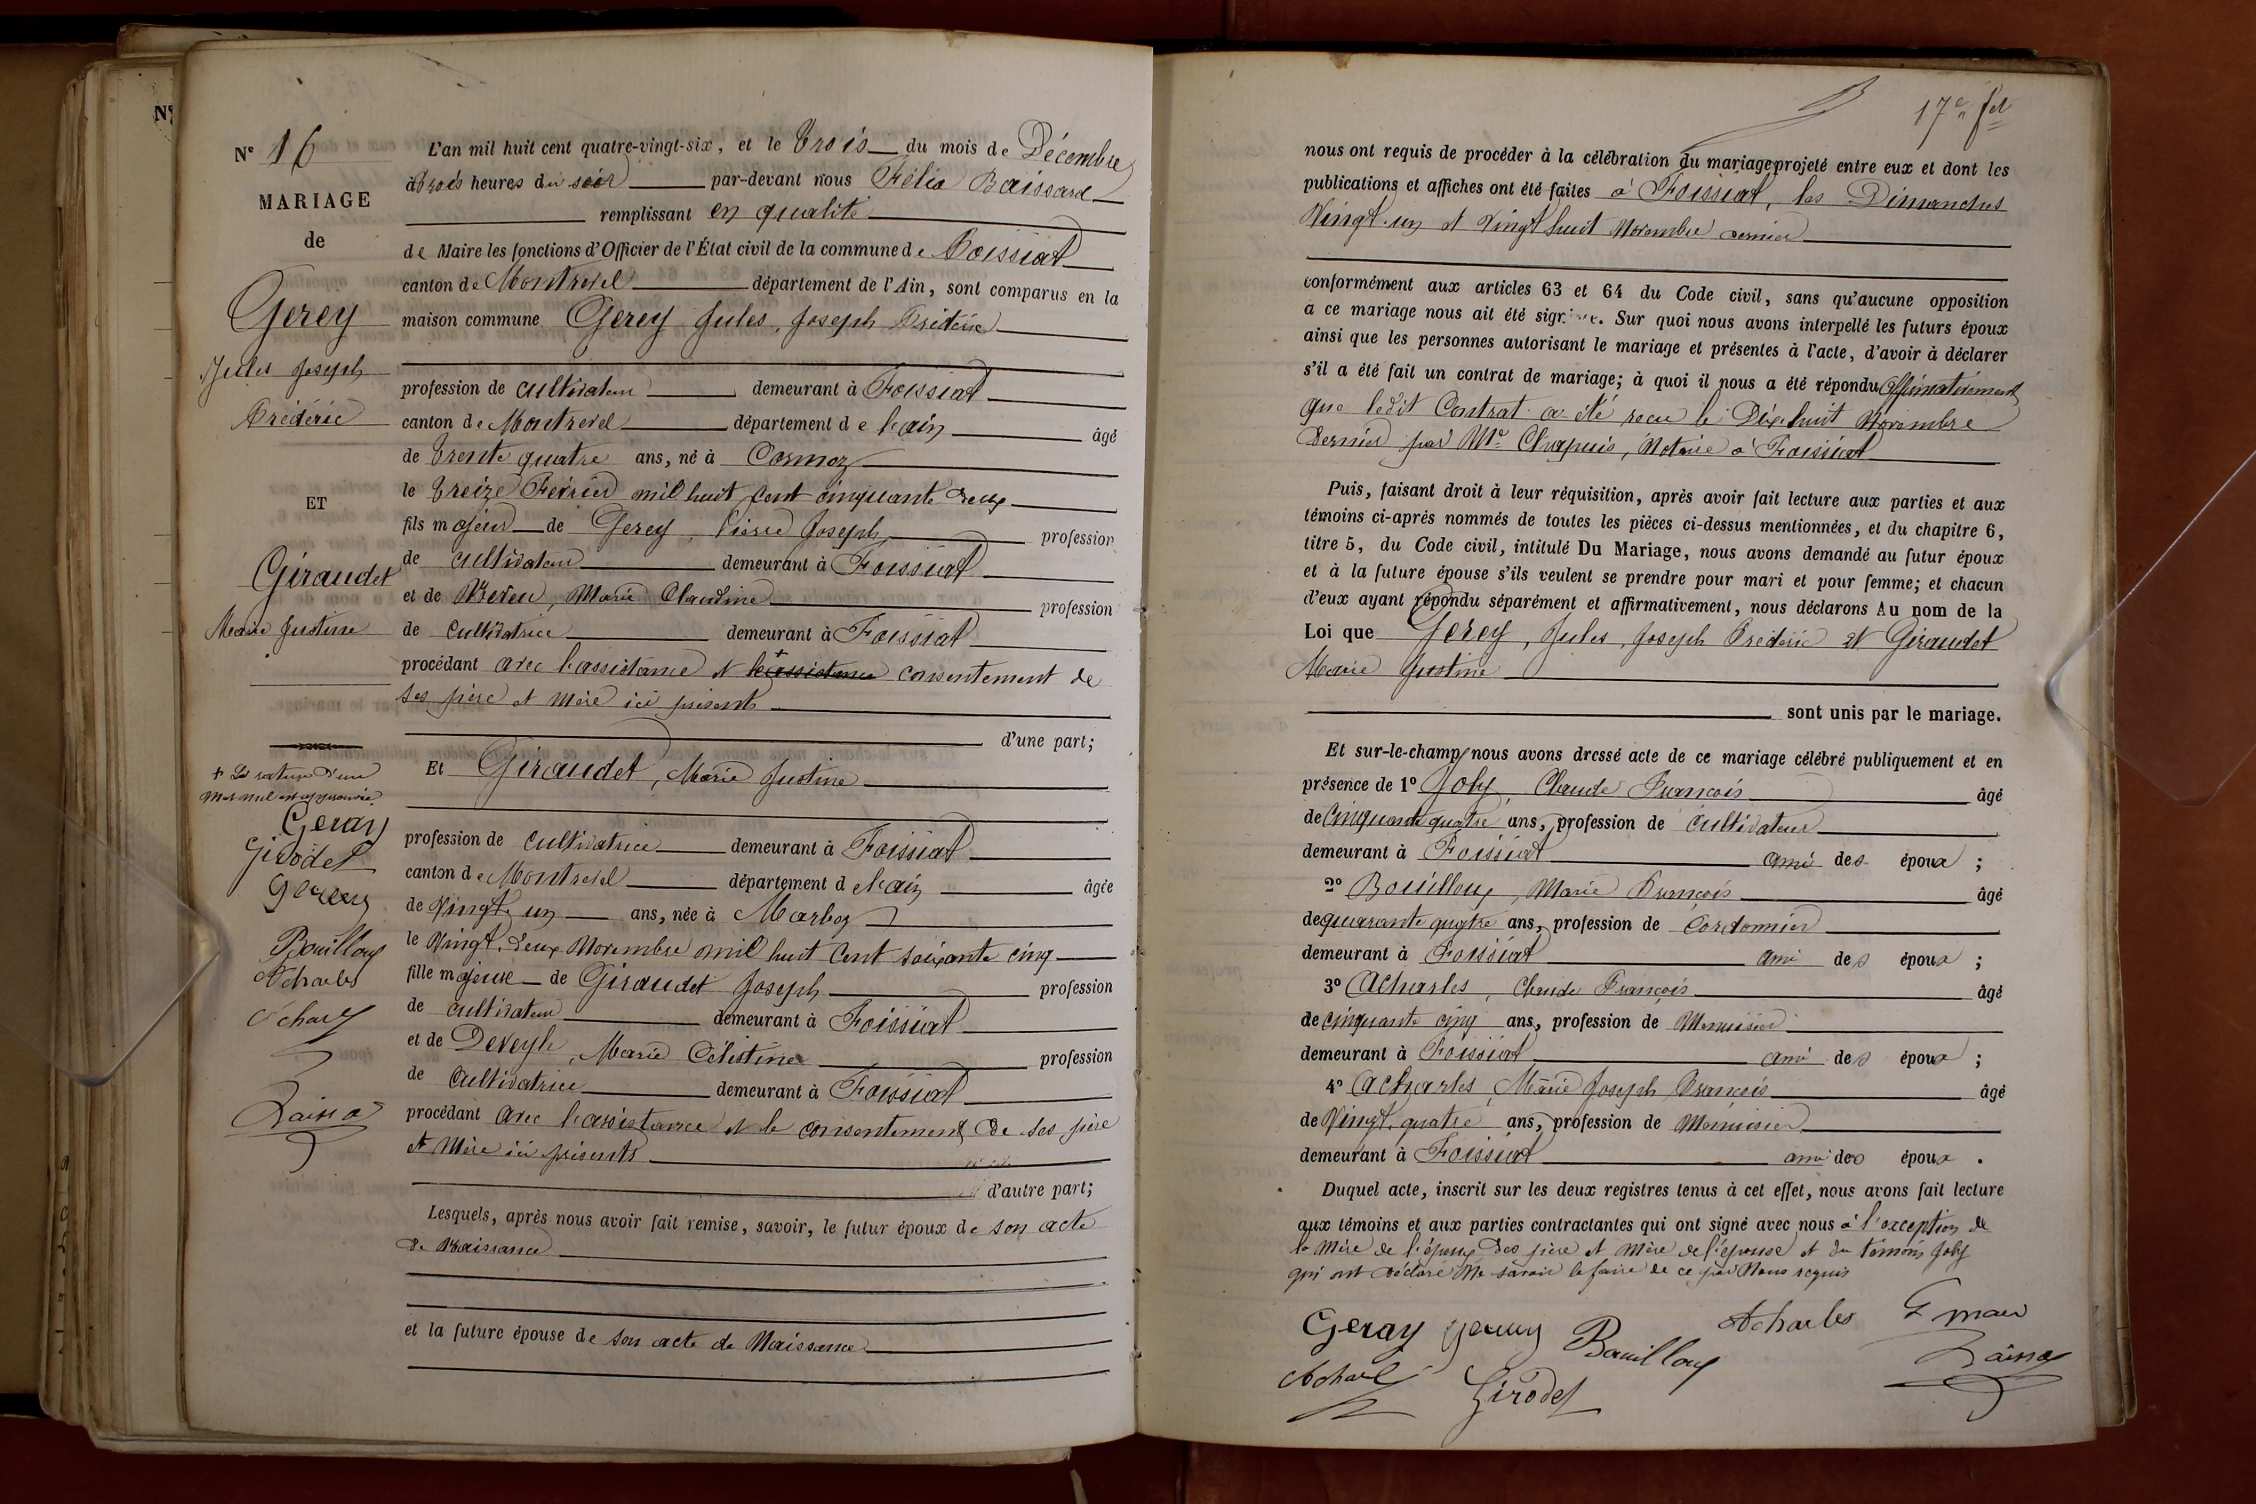 Nº 16
MARIAGE
de
Gerey
Jules Joseph
Frédéric
ET
Giraudet
Marie Justine
+ La rature d'un
mot nul est approuvée
Geray
Girodet
Gerey
Bouilloux
Acharles
Acharles
L'an mil huit cent quatre-vingt-six, et le trois du mois de Décembre
à trois heures du soir par-devant nous Félix
remplissant en qualité
de Maire les fonctions d'Officier de l'État civil de la commune de Foissiat
canton de Montrevel département de l'Ain, sont comparus en la
maison commune Gerey Jules, Joseph Frédéric
profession de cultivateur demeurant à Foissiat
canton de Montrevel département de l'ain âgé
de trente quatre ans, né à Cormoz
le treize Février mil huit cent cinquante deux
fils majeur de Gerey, Pierre Joseph profession
de cultivateur demeurant à Foissiat
et de Marie Claudine profession
de cultivatrice demeurant à Foissiat
procédant avec l'assistance et le + assistance consentement de
ses père et mère ici présents
d'une part;
Et Giraudet, Marie Justine
profession de cultivatrice demeurant à Foissiat
canton de Montrevel département de l'ain âgée
de vingt un ans, née à Marboz
le vingt deux Novembre mil huit cent soixante cinq
fille majeure de Giraudet Joseph profession
de cultivateur demeurant à Foissiat
et de Deveyle, Marie Célestine profession
de cultivatrice demeurant à Foissiat
procédant avec l'assistance et le consentement de ses père
et mère ici présents
d'autre part;
Lesquels, après nous avoir fait remise, savoir, le futur époux de son acte
de Naissance
et la future épouse de son acte de Naissance
17e fet
nous ont requis de procéder à la célébration du mariage projeté entre eux et dont les
publications et affiches ont été faites à Foissiat, les Dimanches
Vingt-un et vingt huit Novembre dernier
conformément aux articles 63 et 64 du Code civil, sans qu'aucune opposition
à ce mariage nous ait été signifiée. Sur quoi nous avons interpellé les futurs époux
ainsi que les personnes autorisant le mariage et présentes à l'acte, d'avoir à déclarer
s'il a été fait un contrat de mariage; à quoi il nous a été répondu affirmativement
que ledit Contrat a été reçu le Dix-huit Novembre
dernier par Me Chapuis, Notaire à Foissiat
Puis, faisant droit à leur réquisition, après avoir fait lecture aux parties et aux
témoins ci-après nommés de toutes les pièces ci-dessus mentionnées, et du chapitre 6,
titre 5, du Code civil, intitulé Du Mariage, nous avons demandé au futur époux
et à la future épouse s'ils veulent se prendre pour mari et pour femme; et chacun
d'eux ayant répondu séparément et affirmativement, nous déclarons Au nom de la
Loi que Gerey, Jules, Joseph Frédéric et Giraudet
Marie Justine
sont unis par le mariage.
Et sur-le-champ nous avons dressé acte de ce mariage célébré publiquement et en
présence de 1º Joly, Claude François âgé
de cinquante quatre ans, profession de cultivateur
demeurant à Foissiat ami des époux ;
2º Bouilloux, Marie François âgé
de quarante quatre ans, profession de Cordonnier
demeurant à Foissiat ami des époux ;
3º Acharles, Claude François âgé
de cinquante cinq ans, profession de Menuisier
demeurant à Foissiat ami des époux ;
4º Acharles, Marie Joseph François âgé
de Vingt quatre ans, profession de Menuisier
demeurant à Foissiat ami des époux .
Duquel acte, inscrit sur les deux registres tenus à cet effet, nous avons fait lecture
aux témoins et aux parties contractantes qui ont signé avec nous à l'exception de
la mère de l'époux des père et mère de l'épouse et du témoin Joly
qui ont déclaré ne savoir le faire de ce par Nous requis
Geray Gerey Bouilloux Acharles
Acharles Girodet